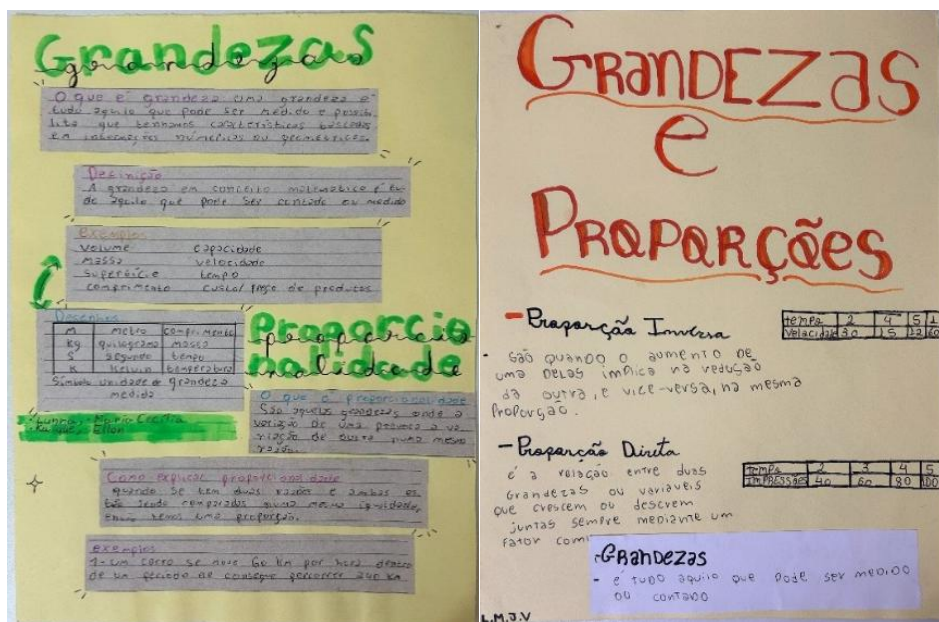 Grandezas
grandezas
O que é grandeza uma grandeza é
tudo aquilo que pode ser medido e possibi
lita que tenhamos características baseadas
em informações numéricas ou geométricas
Definição
A grandeza em conceito matemático é tu-
do aquilo que pode ser contado ou medido
exemplos
volume capacidade
massa velocidade
superfície tempo
comprimento custo/preço de produtos
M metro comprimento
Kg quilograma massa
S segundo tempo
K Kelvin temperatura
Símbolo unidade de grandeza
medida
Maria Cecília
Proporcio
proporcio
nalidade
nalidade
O que é proporcionalidade
São aquelas grandezas onde a
variação de uma provoca a va
riação de outra numa mesma
razão.
Como explicar proporcionalidade
quando se tem duas razões e ambas es
tão sendo comparadas numa mesma igualdade,
então temos uma proporção.
exemplos
1- um carro se move 60 km por hora dentro
de um período de consegue percorrer 240 km
GRANDEZAS
e
PROPARÇÕES
- Proparção Inversa
tempo 2 4 5 1
Velocidade 30 15 12 60
• São quando o aumento de
uma delas implica na redução
da outra, e vice-versa, na mesma
Proporção.
- Proparção Direta
é a relação entre duas
Grandezas ou variáveis
que crescem ou descrem
juntas sempre mediante um
Fator comu
Tempo 2 3 4 5
IMPRESSÕES 40 60 80 100
- GRandezas
- é tudo aquilo que pode ser medido
ou contado
L.M.J.V